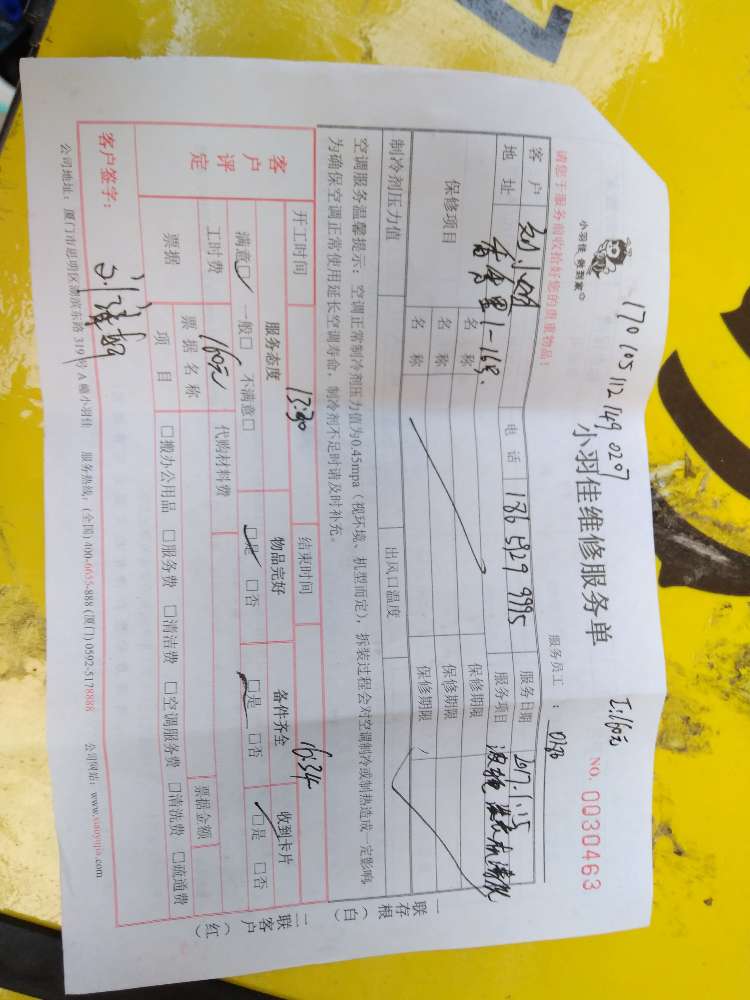 170 105 112 149 0207
工:160元
小羽佳 做到家
小羽佳维修服务单
NO. 0030463
请您于服务前收拾好您的贵重物品!
服务员工:
客户 电话 186 5929 9995 服务日期 2017.1.15
地址 1-168. 服务项目
保修项目 名称 保修期限
名称 保修期限
名称 保修期限
制冷剂压力值 出风口温度
空调服务温馨提示:空调正常制冷剂压力值为0.45mpa(视环境、机型而定),拆装过程会对空调制冷或制热造成一定影响
为确保空调正常使用延长空调寿命,制冷剂不足时请及时补充。
开工时间 13:30 结束时间 16:34
客户评定 服务态度 物品完好 备件齐全 收到卡片
满意☑ 一般□ 不满意□ ☑是 □否 ☑是 □否 ☑是 □否
工时费 160元 代购材料费
票据 票据名称 票据金额
项目 □搬办公用品 □服务费 □清洁费 □空调服务费 □清洗费 □疏通费
一联存根(白)
二联客户(红)
客户签字:
公司地址:厦门市思明区湖滨东路319号A幢小羽佳 服务热线:(全国)400-6655-888 (厦门)0592-5178888 公司网站:www.xiaoyujia.com